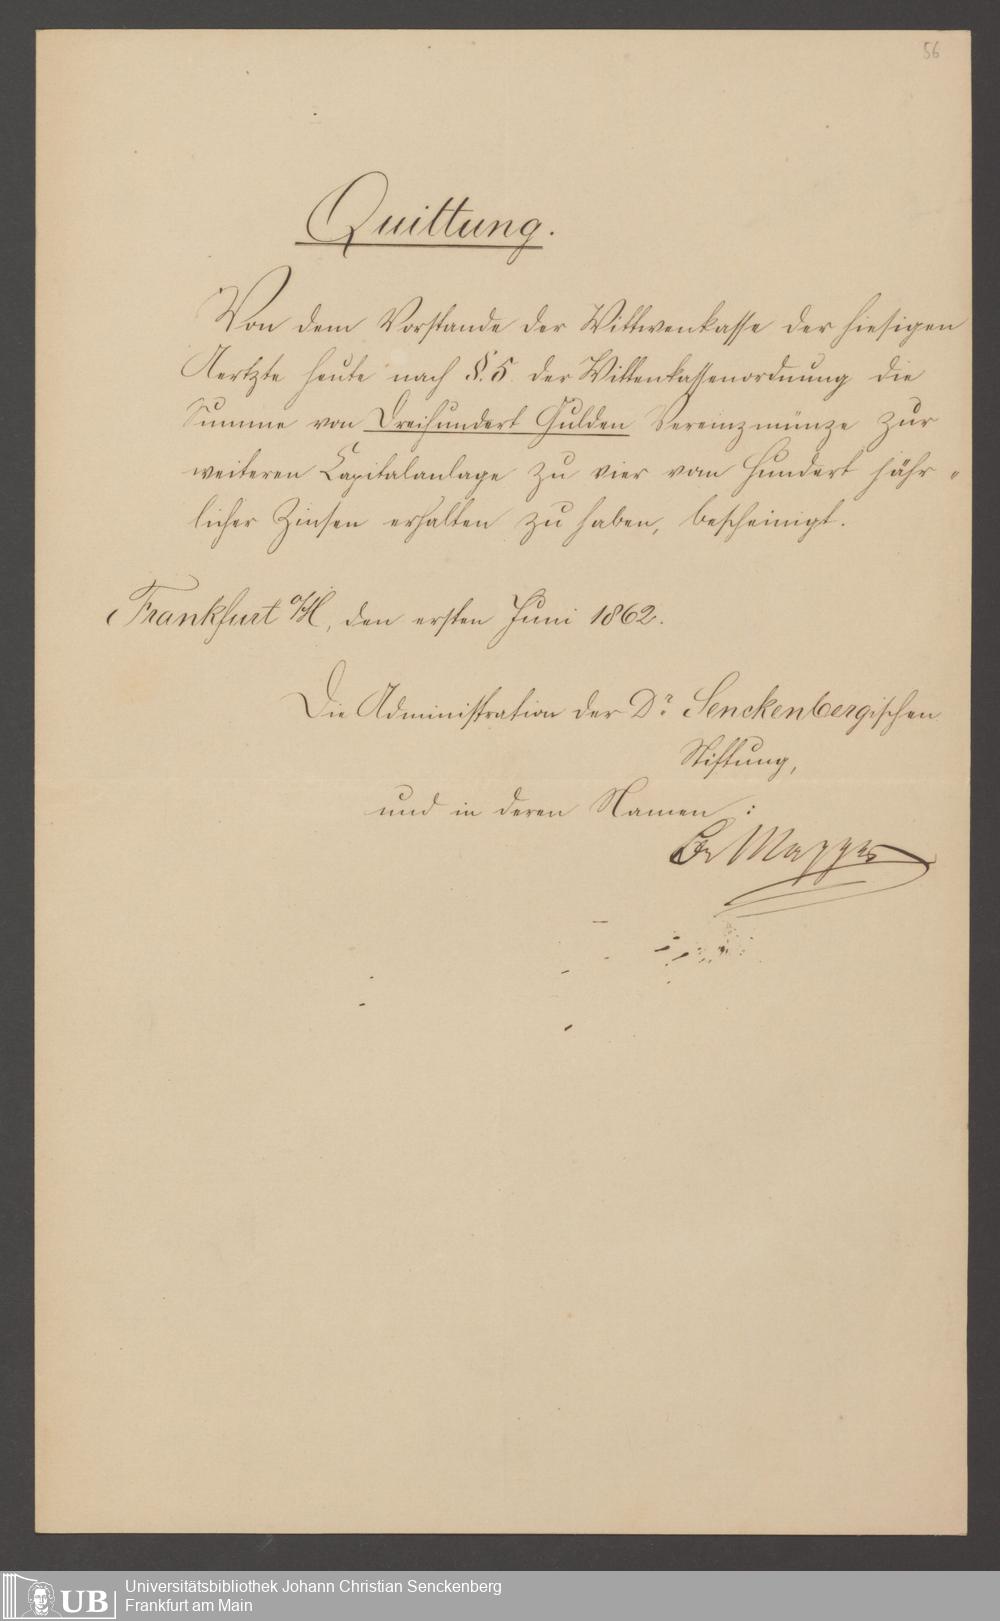 56
Quittung.
Von dem Vorstande der Wittwenkasse der hiesigen
Aertzte heute nach §. 5. der Wittenkassenordnung die
Summe von Dreihundert Gulden Vereinzmünze zur
weiteren Capitalanlage zu vier vom Hundert jähr-
licher Zinsen erhalten zu haben, bescheinigt.
Frankfurt a/M, den ersten Juni 1862.
Die Administration der Dr Senckenbergischen
Stiftung,
und in deren Namen:
Dr Mappes
UB
Universitätsbibliothek Johann Christian Senckenberg
Frankfurt am Main